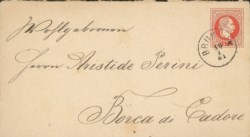 Wohlgeboren
Herrn Aristide Perini
Borca di Cadore